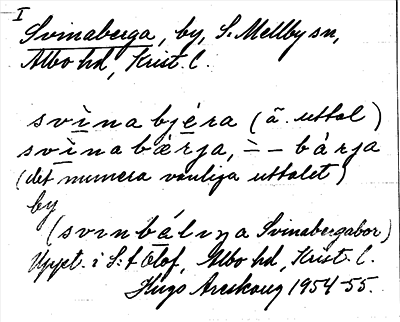 I
Svinaberga, by, S. Mellby sn,
Albo hd, Krist. l.
svìnabjéra (ä. uttal)
svìnabærja, ̀– – bárja
(det numera vanliga uttalet)
by
(svinbáliŋa Svinabergabor)
Uppt. i S:t Olof, Albo hd, Krist. l.
Hugo Areskoug 1954-55.